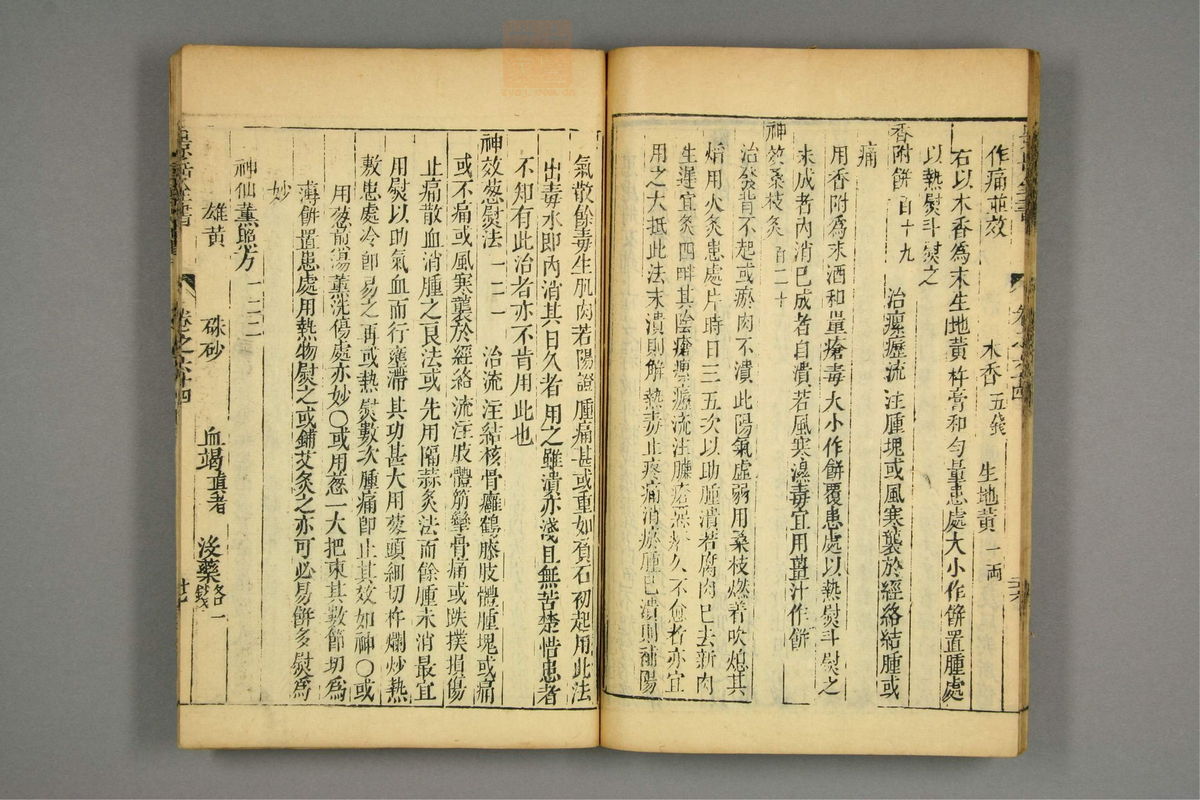 作痛並效
木香五錢 生地黃一兩
右以木香爲末生地黃杵膏和勻量患處大小作餅置腫處
以熱熨斗熨之
香附餅百十九 治瘰癧流注腫塊或風寒襲於經絡結腫或
痛
用香附爲末酒和量瘡毒大小作餅覆患處以熱熨斗熨之
未成者內消已成者自潰若風寒濕毒宜用薑汁作餅
神效桑枝灸百二十
治發背不起或瘀肉不潰此陽氣虛弱用桑枝燃著吹熄其
焰用火灸患處片時日三五次以助腫潰若腐肉已去新肉
生遲宜灸四畔其陰瘡瘰癧流注臁瘡惡瘡久不愈者亦宜
用之大抵此法未潰則解熱毒止疼痛消瘀腫已潰則補陽
氣散餘毒生肌肉若陽證腫痛甚或重如負石初起用此法
出毒水卽內消其日久者用之雖潰亦淺且無苦楚惜患者
不知有此治者亦不肯用此也
神效葱熨法一二一 治流注結核骨癰鶴膝肢體腫塊或痛
或不痛或風寒襲於經絡流注肢體筋攣骨痛或跌撲損傷
止痛散血消腫之良法或先用隔蒜灸法而餘腫未消最宜
用熨以助氣血而行壅滯其功甚大用葱頭細切杵爛炒熱
敷患處冷卽易之再或熱熨數次腫痛卽止其效如神○或
用葱煎湯薰洗傷處亦妙○或用葱一大把束其數節切爲
薄餅置患處用熱物熨之或鋪艾灸之亦可必易餅多熨爲
妙
神仙薰照方一二二
雄黃 硃砂 血竭真者 沒藥各一錢
卷之六十四